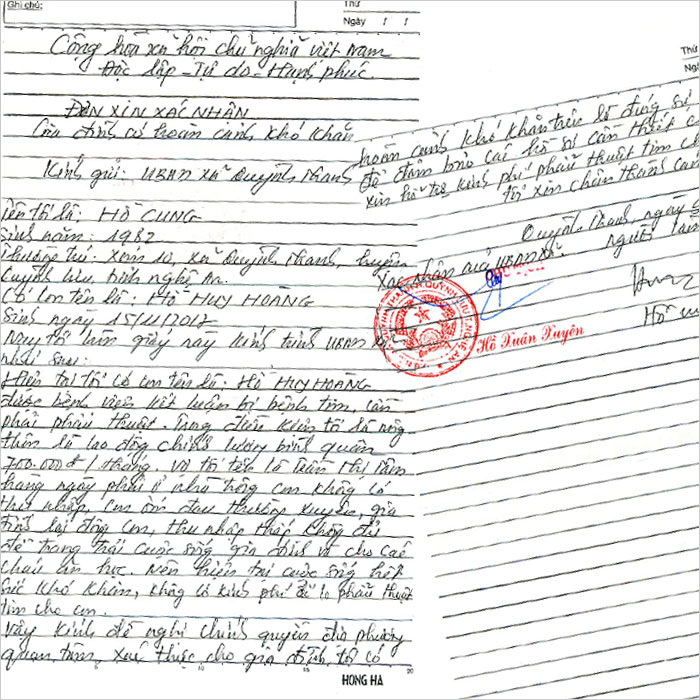 Ghi chú:
Thứ
Ngày
Cộng hòa xã hội chủ nghĩa việt nam
Độc lập - Tự do - Hạnh phúc
ĐƠN XIN XÁC NHẬN
Gia đình có hoàn cảnh khó khăn
Kính gửi: UBND xã Quỳnh Thanh
Tên tôi là: HỒ CUNG
Sinh năm: 1982
Thường trú: xóm 10, xã Quỳnh Thanh, huyện
Quỳnh lưu, tỉnh nghệ An
Có con tên là: HỒ HUY HOÀNG
Sinh ngày 15/11/2012
Nay tôi làm giấy này kính trình UBND
như sau:
Hiện tại tôi có con tên là: HỒ HUY HOÀNG
được bệnh viện kết luận bị bệnh tim, cần
phải phẫu thuật. Trong điều kiện tôi là nông
thôn là lao động chính lương bình quân
700.000đ / tháng. vợ tôi tên là Trần Thị Tâm
hàng ngày phải ở nhà trông con không có
thu nhập, con ốm đau thường xuyên, gia
đình lại đông con, thu nhập thấp không đủ
để trang trải cuộc sống gia đình và cho các
cháu ăn học. Nên hiện tại cuộc sống hết
sức khó khăn, không có kinh phí để lo phẫu thuật
tim cho con.
Vậy kính đề nghị chính quyền địa phương
quan tâm, xác thực cho gia đình tôi có
HONG HA
Thứ
hoàn cảnh khó khăn trên là đúng sự
để đảm bảo các hồ sơ cần thiết
xin hỗ trợ kinh phí phẫu thuật tim
tôi xin chân thành cảm
Quỳnh Thanh, ngày
Xác nhận của UBND xã. người làm
Hồ Xuân Xuyên
Hồ